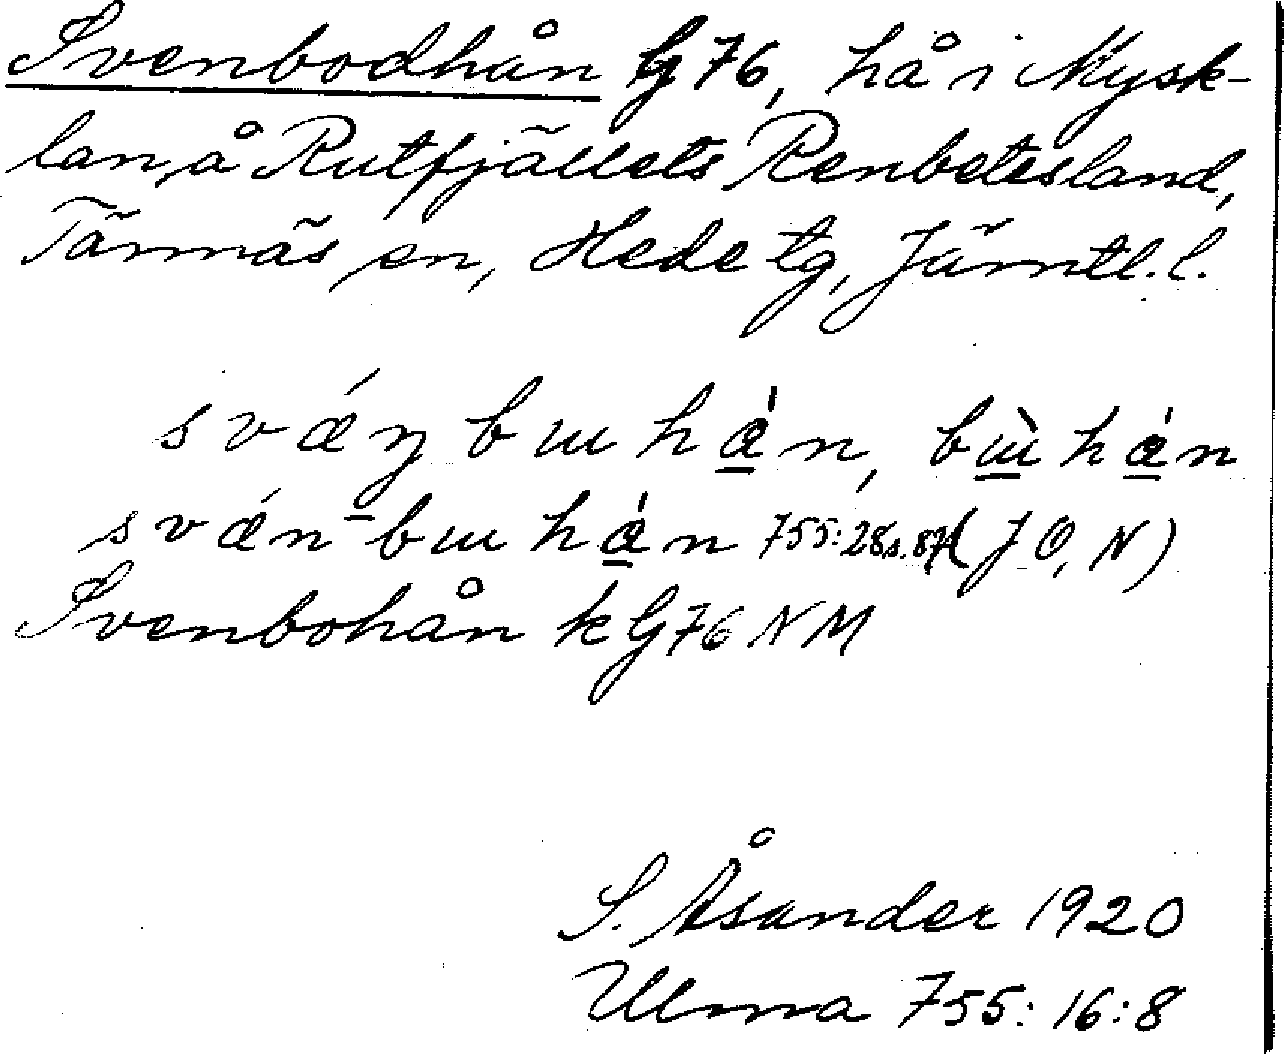 Svenbodhån G 76, hå i Mysk-
lan, å Rutfjällets Renbetesland,
Tännäs sn, Hede tg, Jämtl. l.
sváŋ bɯ hȧ̱n, bɯ̱̀ hȧ̱n
sván-bɯ hȧ̱n 755:28 s. 87 (J O, N)
Svenbohån k G 76 N M
S. Åsander 1920
Ulma 755:16:8